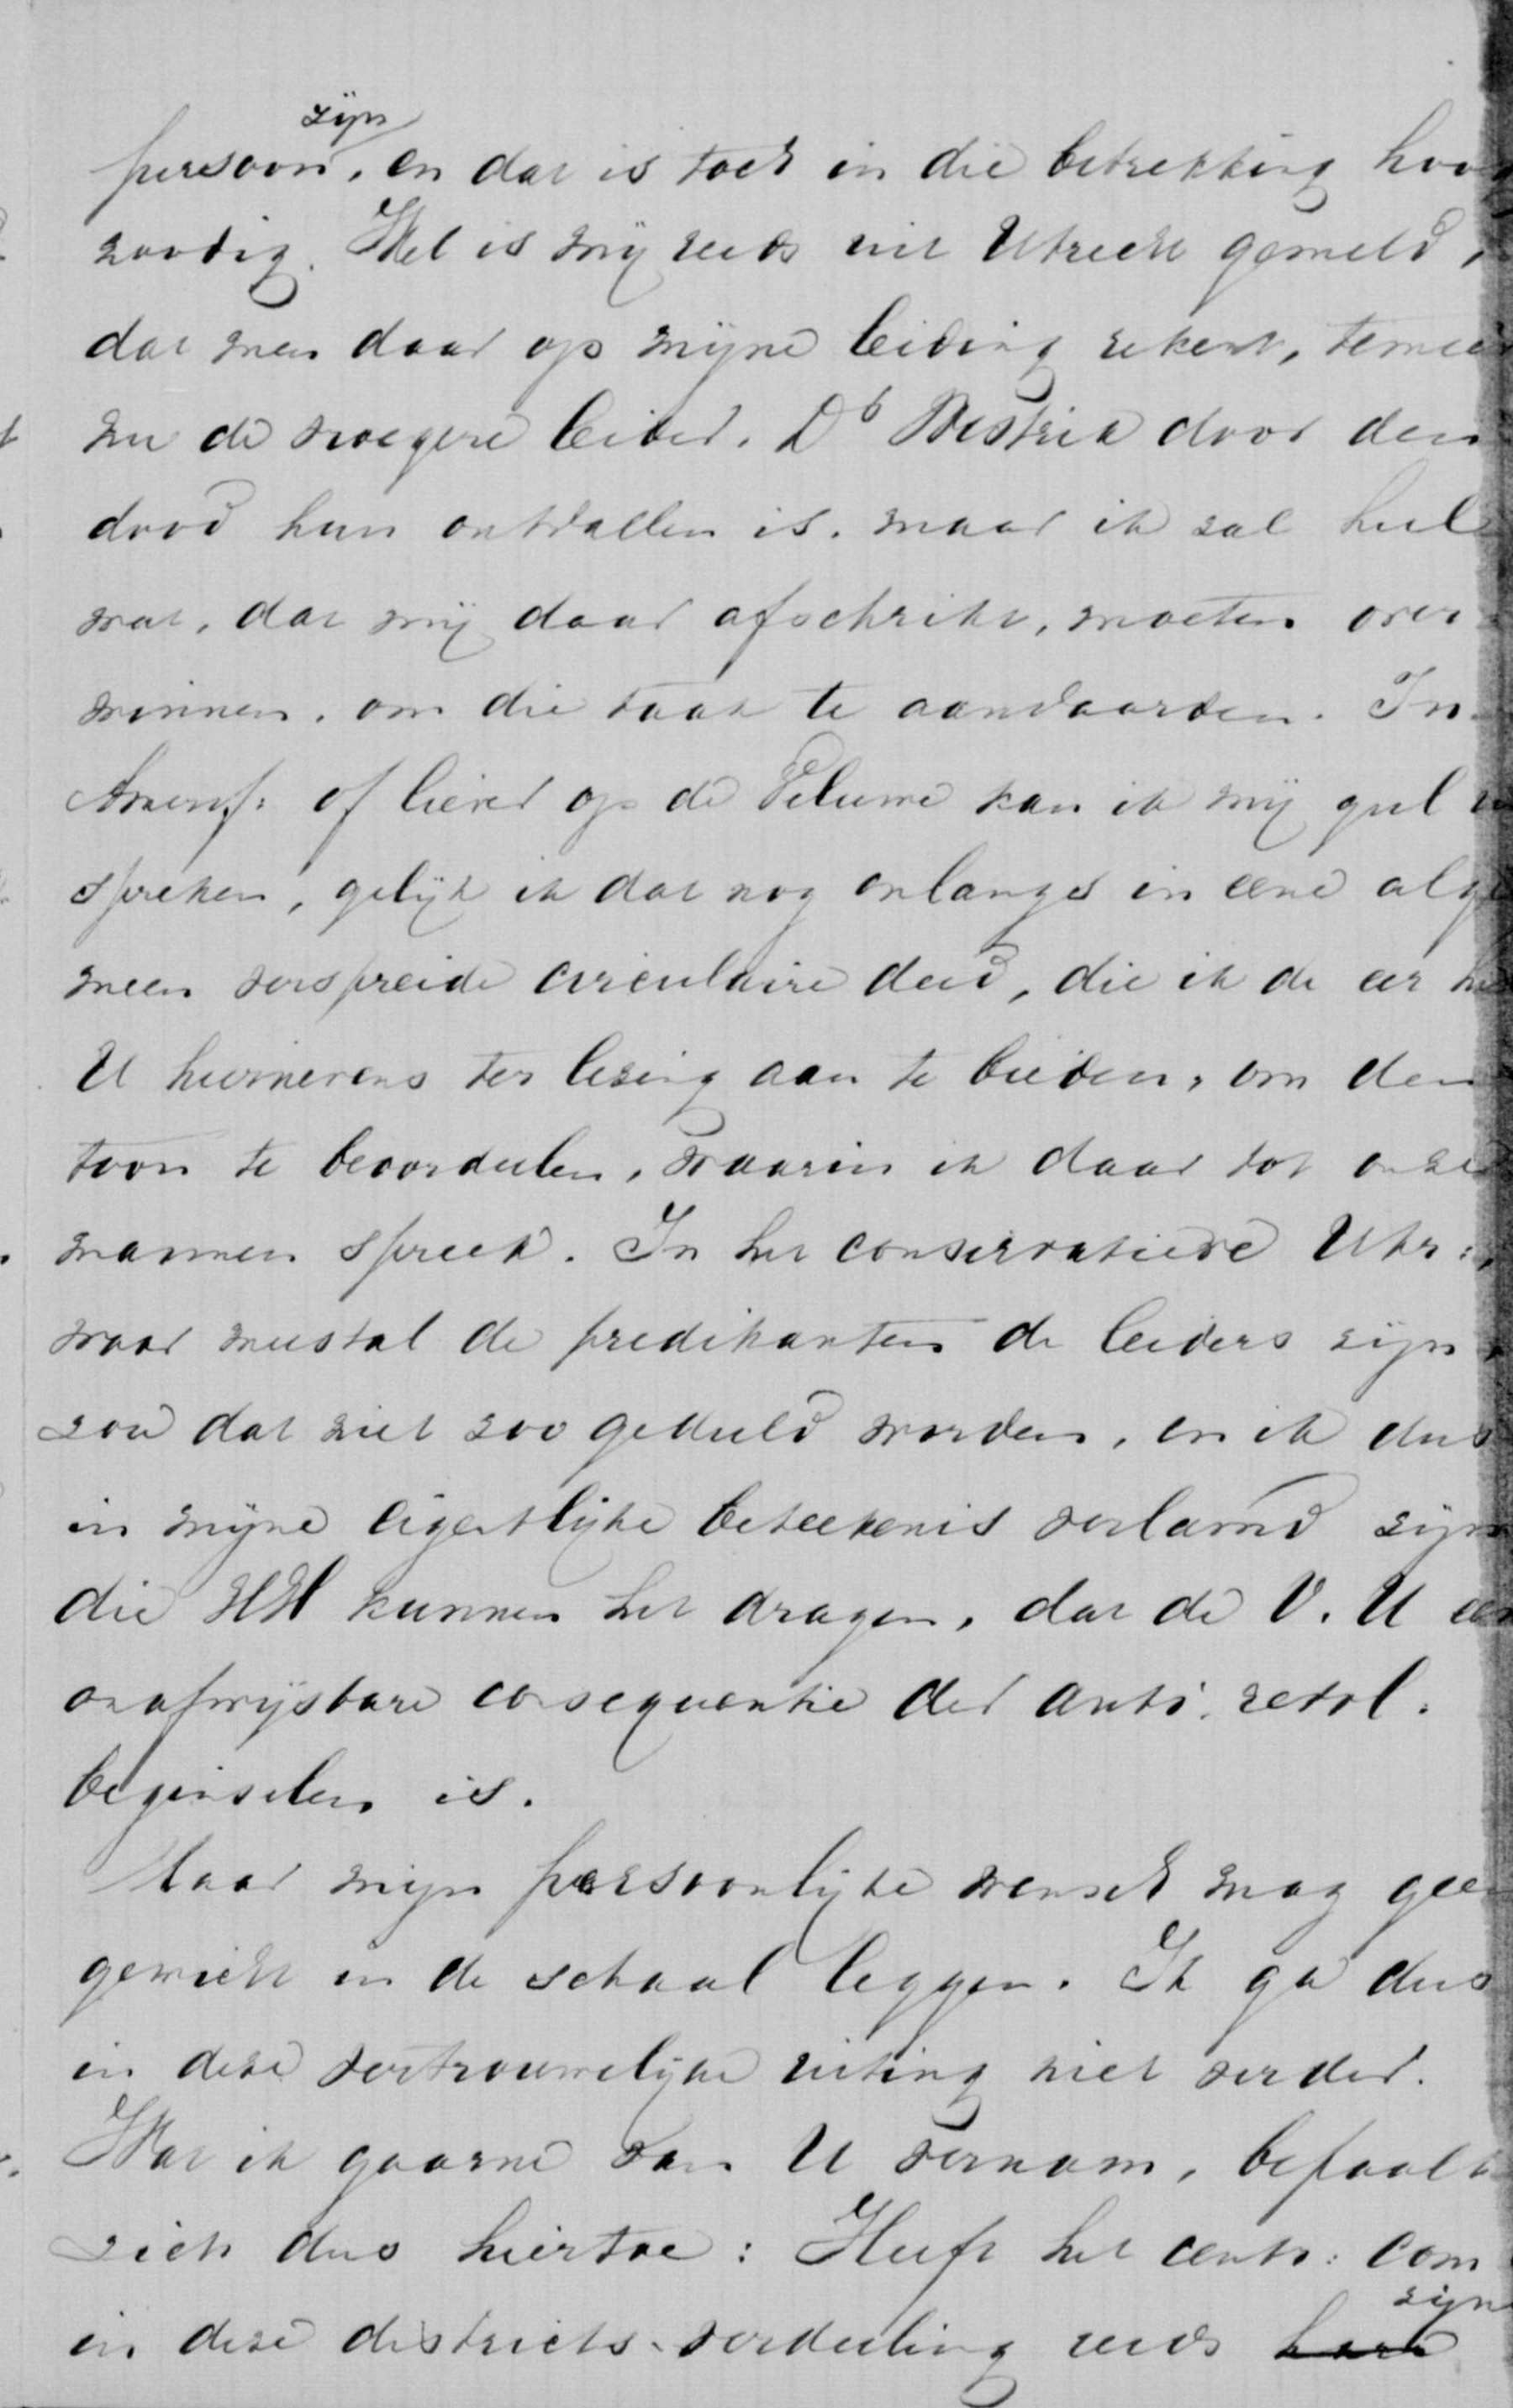 zijn
persoon, en dat is toch in die betrekking hoog
noodig. Wel is mij reeds uit Utrecht gemeld,
dat men daar op mijne leiding rekent, temeer
nu de vroegere leider, Ds Westrik door den
dood hun ontvallen is, maar ik zal heel
wat, dat mij daar afschrikt, moeten over
winnen, om die taak te aanvaarden. In
Amersf: of liever op de Veluwe kan ik mij gul
spreken, gelijk ik dat nog onlangs in eene alge
meen verspreide circulaire deed, die ik de eer heb
U hiernevens ter lezing aan te bieden, om den
toon te beoordeelen, waarin ik daar tot onze
mannen spreek. In het conservatieve Utr:,
waar meestal de predikanten de leiders zijn,
zou dat niet zoo geduld worden, en ik dus
in mijne eigentlijke beteekenis verlamd zijn
die HH kunnen het dragen, dat de V. U een
onafwijsbare consequentie der anti. revol.
beginselen is.
Maar mijn persoonlijke wensch mag geen
gewicht in de schaal leggen. Ik ga dus
in deze vertrouwelijke uiting niet verder.
Wat ik gaarne van U vernam, bepaalt
zich dus hiertoe: Heeft het centr: com
zijn
in deze districts-verdeeling reeds hare